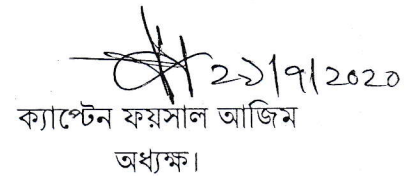 ২৯/৭/২০২০
ক্যাপ্টেন ফয়সাল আজিম
অধ্যক্ষ।